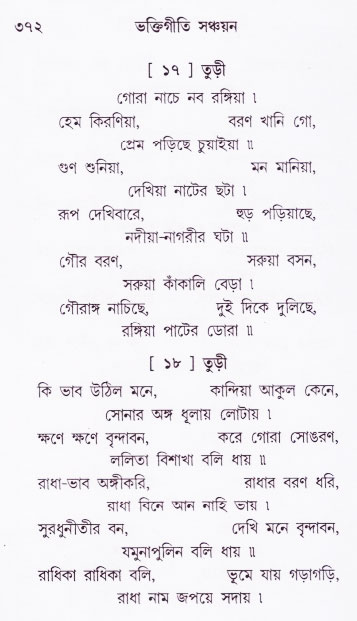 ৩৭২ ভক্তিগীতি সঞ্চয়ন
[ ১৭ ] তুড়ী
গোরা নাচে নব রঙ্গিয়া ৷
হেম কিরণিয়া, বরণ খানি গো,
প্রেম পড়িছে চুয়াইয়া ৷৷
গুণ শুনিয়া, মন মানিয়া,
দেখিয়া নাটের ছটা ৷
রূপ দেখিবারে, হুড় পড়িয়াছে,
নদীয়া-নাগরীর ঘটা ৷৷
গৌর বরণ, সরুয়া বসন,
সরুয়া কাঁকালি বেড়া ৷
গৌরাঙ্গ নাচিছে, দুই দিকে দুলিছে,
রঙ্গিয়া পাটের ডোরা ৷৷
[ ১৮ ] তুড়ী
কি ভাব উঠিল মনে, কান্দিয়া আকুল কেনে,
সোনার অঙ্গ ধূলায় লোটায় ৷
ক্ষণে ক্ষণে বৃন্দাবন, করে গোরা সোঙরণ,
ললিতা বিশাখা বলি ধায় ৷৷
রাধা-ভাব অঙ্গীকরি, রাধার বরণ ধরি,
রাধা বিনে আন নাহি ভায় ৷
সুরধুনীতীর বন, দেখি মনে বৃন্দাবন,
যমুনাপুলিন বলি ধায় ৷৷
রাধিকা রাধিকা বলি, ভূমে যায় গড়াগড়ি,
রাধা নাম জপয়ে সদায় ৷